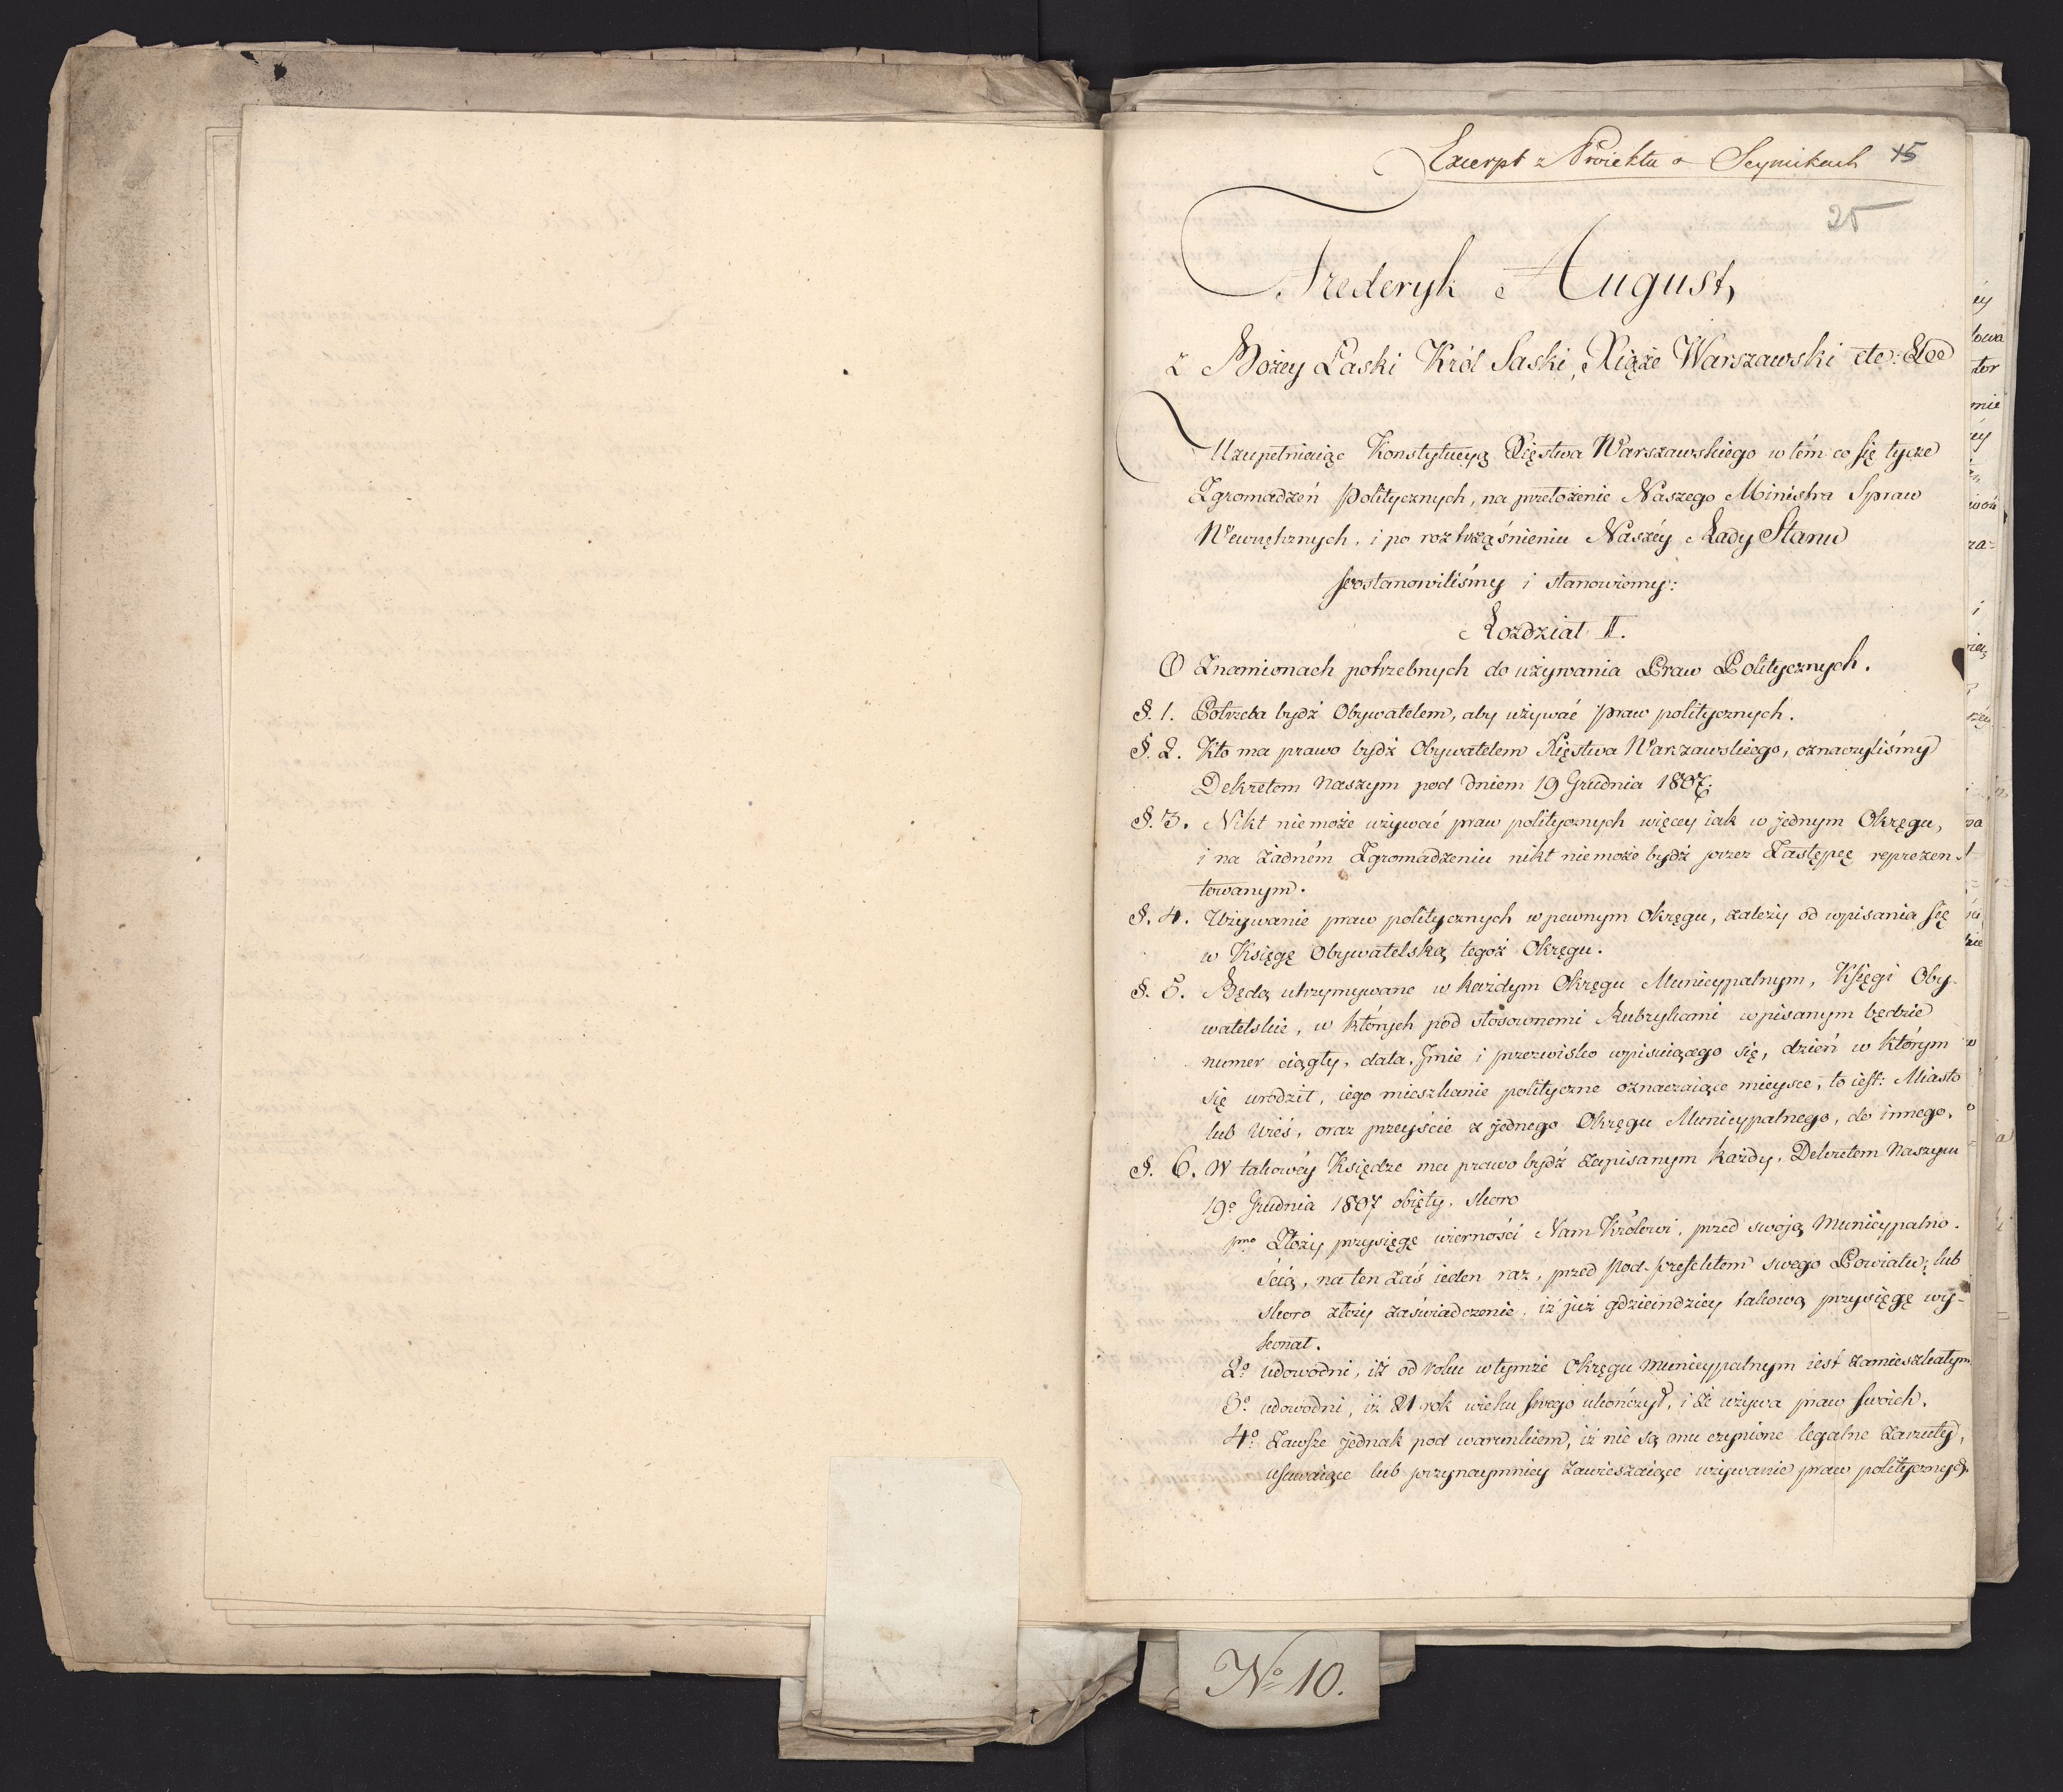 Excerpt z Proiektu o Seymikach 15
25
Frederyk August,
z Bożey Łaski Król Saski, Xiąże Warszawski etc: Etc
Uzupełniaiąc Konstytucyą Xięstwa Warszawskiego w tém co się tycze
Zgromadzeń Politycznych, na przełożenie Naszego Ministra Spraw
Wewnętrznych, i po roztrząśnieniu Naszéy Rady Stanu
postanowiliśmy i stanowiemy:
Rozdział II.
O Znamionach potrzebnych do używania Praw Politycznych.
§. 1. Potrzeba bydź Obywatelem, aby używać praw politycznych.
§. 2. Kto ma prawo bydź Obywatelem Xięstwa Warszawskiego, oznaczyliśmy
Dekretem Naszym pod dniem 19 Grudnia 1807.
§. 3. Nikt nie może używać praw politycznych więcey iak w jednym Okręgu,
i na żadném Zgromadzeniu nikt nie może bydź przez Zastępcę reprezen-
towanym.
§. 4. Używanie praw politycznych w pewnym Okręgu, zależy od wpisania się
w Księgę Obywatelską tegoż Okręgu.
§. 5. Będą utrzymywane w każdym Okręgu Municypalnym, Księgi Oby-
watelskie, w których pod stosownemi Rubrykami wpisanym będzie
numer ciągły, data, Jmie i przezwisko wpisuiącego się, dzień w którym
się urodził, iego mieszkanie polityczne oznaczaiące mieysce, to iest: Miasto
lub Wieś, oraz przeyście z jednego Okręgu Municypalnego, do innego.
§. 6. W takowéy Księdze ma prawo bydź zapisanym każdy, Dekretem Naszym
19º Grudnia 1807 obięty, skoro
pmo Złoży przysięgę wierności Nam Królowi, przed swoją Municypalno-
ścią, na ten zaś ieden raz, przed Pod-prefektem swego Powiatu; lub
skoro złoży zaświadczenie, iż już gdzieindziey takową przysięgę wy-
konał.
2º udowodni, iż od roku w tymże Okręgu Municypalnym iest zamieszkałym
3º udowodni, iż 21 rok wieku swego ukończył, i że używa praw swoich.
4º Zawsze jednak pod warunkiem, iż nie są mu czynione legalne zarzuty,
usuwaiące lub przynaymniey zawieszaiące używanie praw politycznych.
Nº 10.